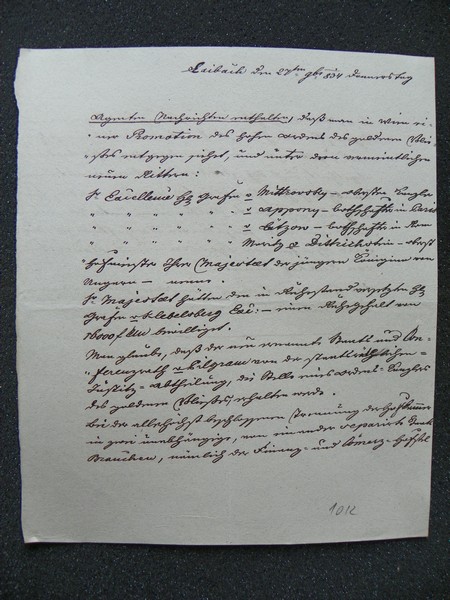 Laibach den 27ten 9br 834 Donnerstag
Agenten Nachrichten enthalten, daß man in Wien ei-
ner Promotion des hohen Ordens des goldenen Vlie-
ßes entgegen sehet, und unter den vermeintlichen
neuen Rittern:
Sr Excellenz H Grafen v Mittrovsky – oberster Kanzler
" " " " " v Appony – Botschafter in Paris
" " " " " v Lützow – Botschafter in Rom
" " " " " Moritz v Dietrichstein – oberst
hofmeister Ihrer Majestaet der jüngern Königinn von
Ungarn – nennt.
Sr Majestaet hätten dem in Ruhestand versetzten H
Grafen v Klebelsberg Exc: – einen Ruhegehalt von
16000 f bewilliget.
Man glaubt, daß der neu ernannte Staats und Con-
ferenzrath v Pilgram von der staatsräthlichen
Justitz-Abtheilung, die Stelle eines Ordens-Kanzlers
des goldenen Vließes erhalten werde.
Bei der allerhöchst beschlossenen Trennung der Hofkammer
in zwei unabhängige, von einander separirte
Branchen, nämlich der Finanz- und Comerz-Hofstel
1012